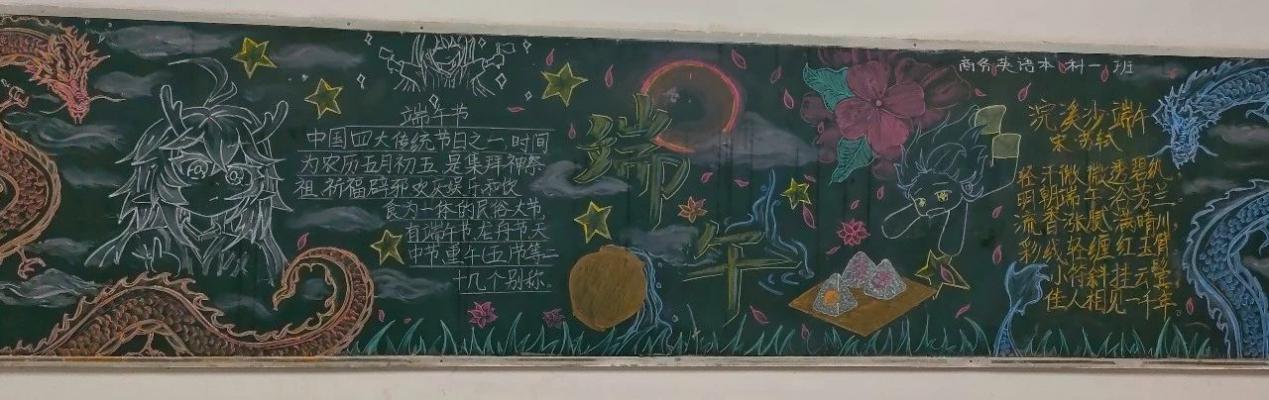 端午节
中国四大传统节日之一，时间
为农历五月初五，是集拜神祭
祖、祈福辟邪、欢庆娱乐和饮
食为一体的民俗大节，
有端午节、龙舟节、天
中节、重午(五)节等二
十几个别称。
端午
商务英语本科一班
浣溪沙 端午
宋 苏轼
轻汗微微透碧纨，
明朝端午浴芳兰。
流香涨腻满晴川。
彩线轻缠红玉臂，
小符斜挂云鬟。
佳人相见一千年。